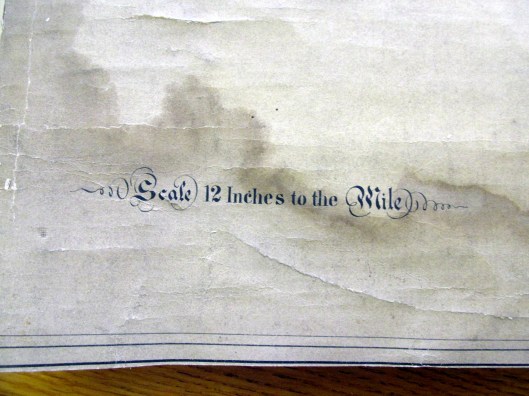 Scale 12 Inches to the Mile